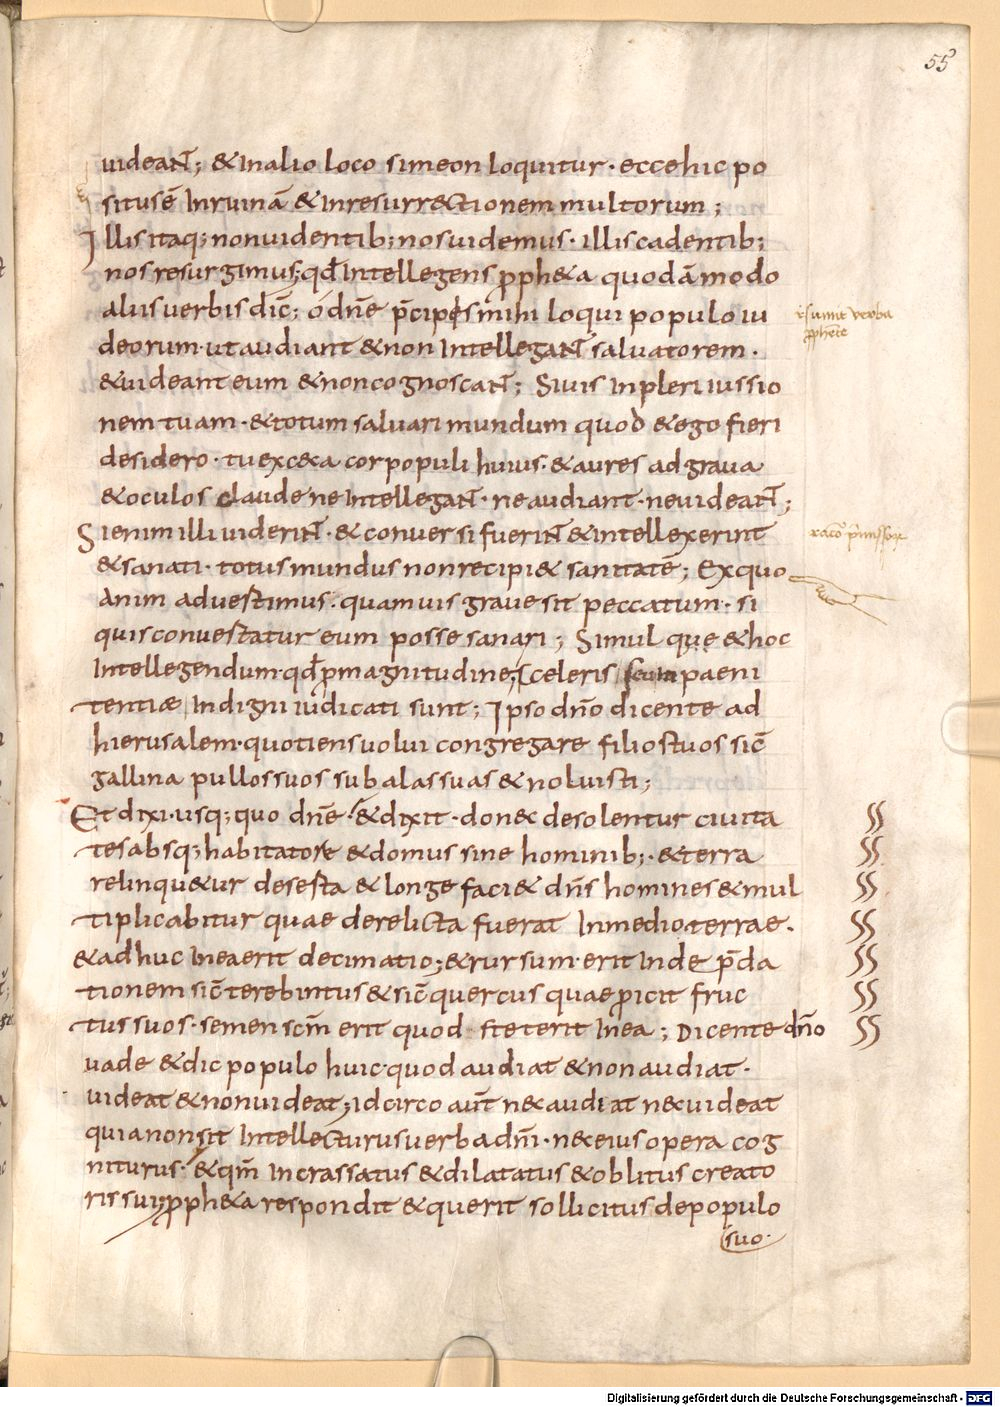 55
uideant; & In alio loco simeon loquitur · ecce hic po
situs ē In ruinā & In resurrectionem multorum ;
Illis itaq; non uidentib; nos uidemus · illis cadentib;
nos resurgimus; qđ Intellegens ꝓph&a quodā modo
aliis uerbis dic̄; o dn̄e p̄cipis mihi loqui populo iu
deorum · ut audiant & non Intellegant saluatorem ·
& uideant eum & non cognoscant; Si uis Inpleri iussio
nem tuam · & totum saluari mundum quod & ego fieri
desidero · tu exc&a cor populi huius · & aures adgraua
& oculos claude ne Intellegant · ne audiant · ne uideant;
Si enim illi uiderint · & conuersi fuerint & intellexerint
& sanati · totus mundus non recipi& sanitatē; Ex quo
animaduertimus · quamuis graue sit peccatum · si
quis conuertatur eum posse sanari ; Simulque & hoc
Intellegendum · qđ ꝓ magnitudine sceleris paeni
tentiae Indigni iudicati sunt; Ipso dn̄o dicente ad
hierusalem · quotiens uolui congregare filios tuos sic̄
gallina pullos suos sub alas suas & noluisti;
Et dixi · usq; quo dn̄e · & dixit · donec desolentur ciuita
tes absq; habitatore & domus sine hominib; · & terra
relinqu&ur deserta & longe faci& dn̄s homines & mul
tiplicabitur quae derelicta fuerat In medio terrae ·
& adhuc In ea erit decimatio; & rursum · erit In dep̄da
tionem sic̄ terebintus & sic̄ quercus quae ꝓicit fruc
tus suos · semen scm̄ erit quod steterit In ea ; Dicente dn̄o
uade & dic populo huic · quod audiat & non audiat ·
uideat & non uideat; idcirco aut̄ nec audiat nec uideat
quia non sit Intellecturus uerba dn̄i · nec eius opera cog
niturus · & qm̄ Incrassatus & dilatatus & oblitus creato
ris sui; ꝓph&a respondit & querit sollicitus de populo
suo ·
Digitalisierung gefördert durch die Deutsche Forschungsgemeinschaft - DFG